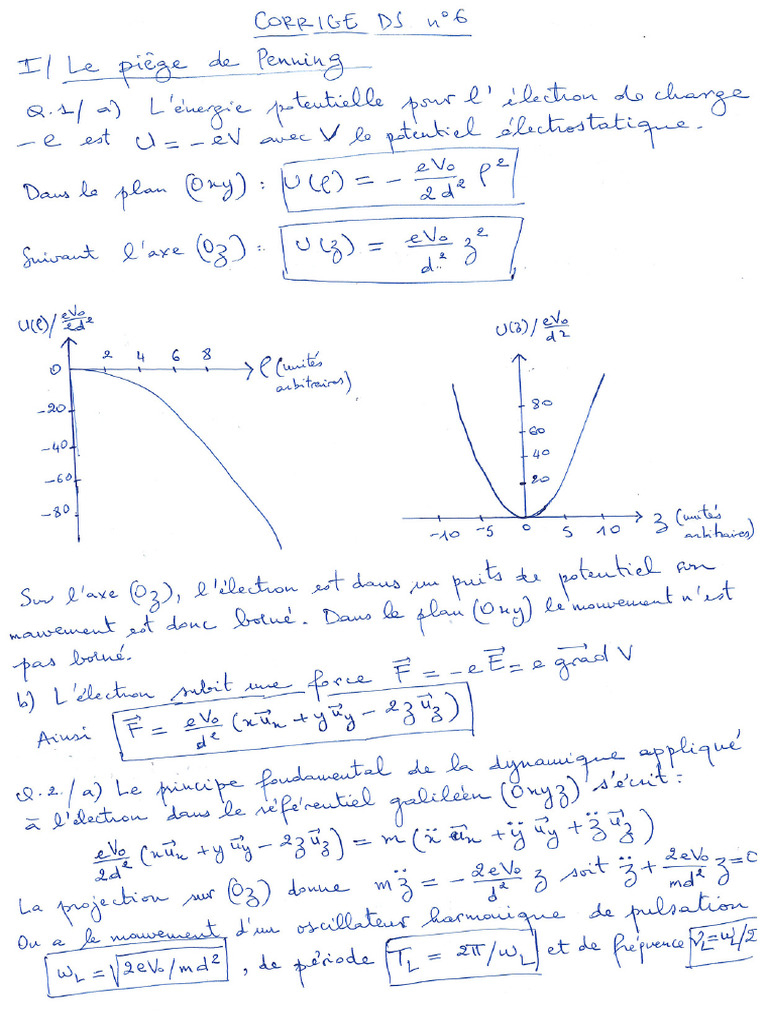 CORRIGE DS n°6
I/ Le piège de Penning
Q.1/ a) L'énergie potentielle pour l'électron de charge
-e est U = -eV avec V le potentiel électrostatique.
Dans le plan (Oxy) : U(ρ) = - eV₀/2d² ρ²
Suivant l'axe (Oz) : U(z) = eV₀/d² z²
U(ρ)/eV₀/2d²
0 2 4 6 8 ρ (unités arbitraires)
-20
-40
-60
-80
U(z)/eV₀/d²
80
60
40
20
-10 -5 0 5 10 z (unités arbitraires)
Sur l'axe (Oz), l'électron est dans un puits de potentiel son
mouvement est donc borné. Dans le plan (Oxy) le mouvement n'est
pas borné.
b) L'électron subit une force F⃗ = -eE⃗ = e grad⃗ V
Ainsi F⃗ = eV₀/d² (xu⃗x + yu⃗y - 2zu⃗z)
Q.2./ a) Le principe fondamental de la dynamique appliqué
à l'électron dans le référentiel galiléen (Oxyz) s'écrit :
eV₀/2d² (xu⃗x + yu⃗y - 2zu⃗z) = m(ẍu⃗x + ÿu⃗y + z̈u⃗z)
La projection sur (Oz) donne mz̈ = - 2eV₀/d² z soit z̈ + 2eV₀/md² z = 0
On a le mouvement d'un oscillateur harmonique de pulsation
ω_L = √2eV₀/md² , de période T_L = 2π/ω_L et de fréquence